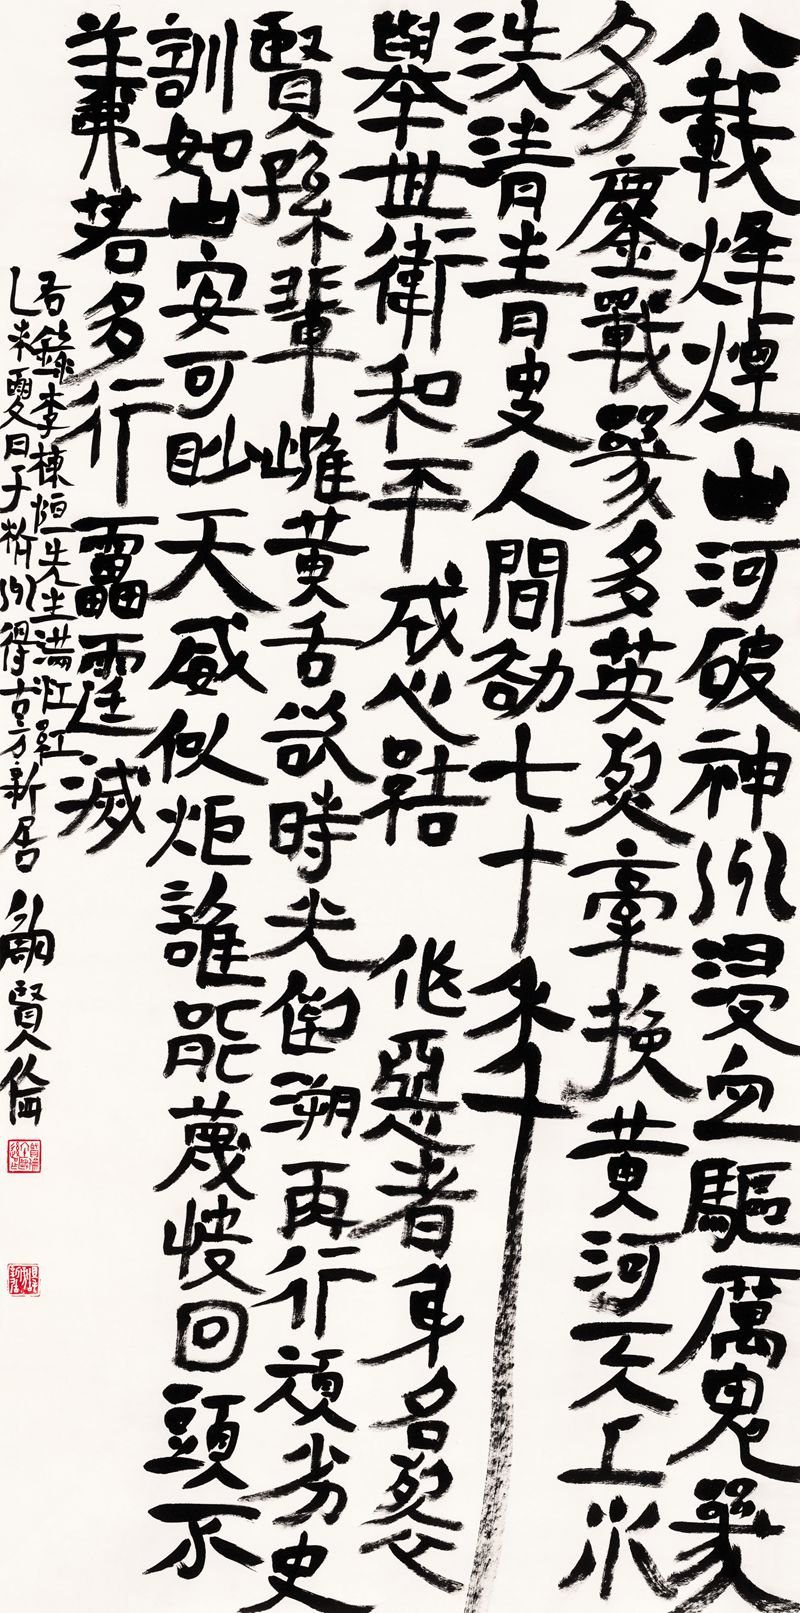 八載烽煙山河破神州浸血驅厲鬼幾
多鏖戰幾多英烈牽挽黃河天上水
洗清青史人間劫七十年
舉世衛和平成心結 作惡者身名裂
賢孫輩雌黃舌欲時光倒溯再行頑劣史
訓如山安可眇天威似炬誰能蔑回頭不
義若多行靁霆滅
右錄李棟恒先生滿江紅
乙未夏日于州得古方新居 賢倫